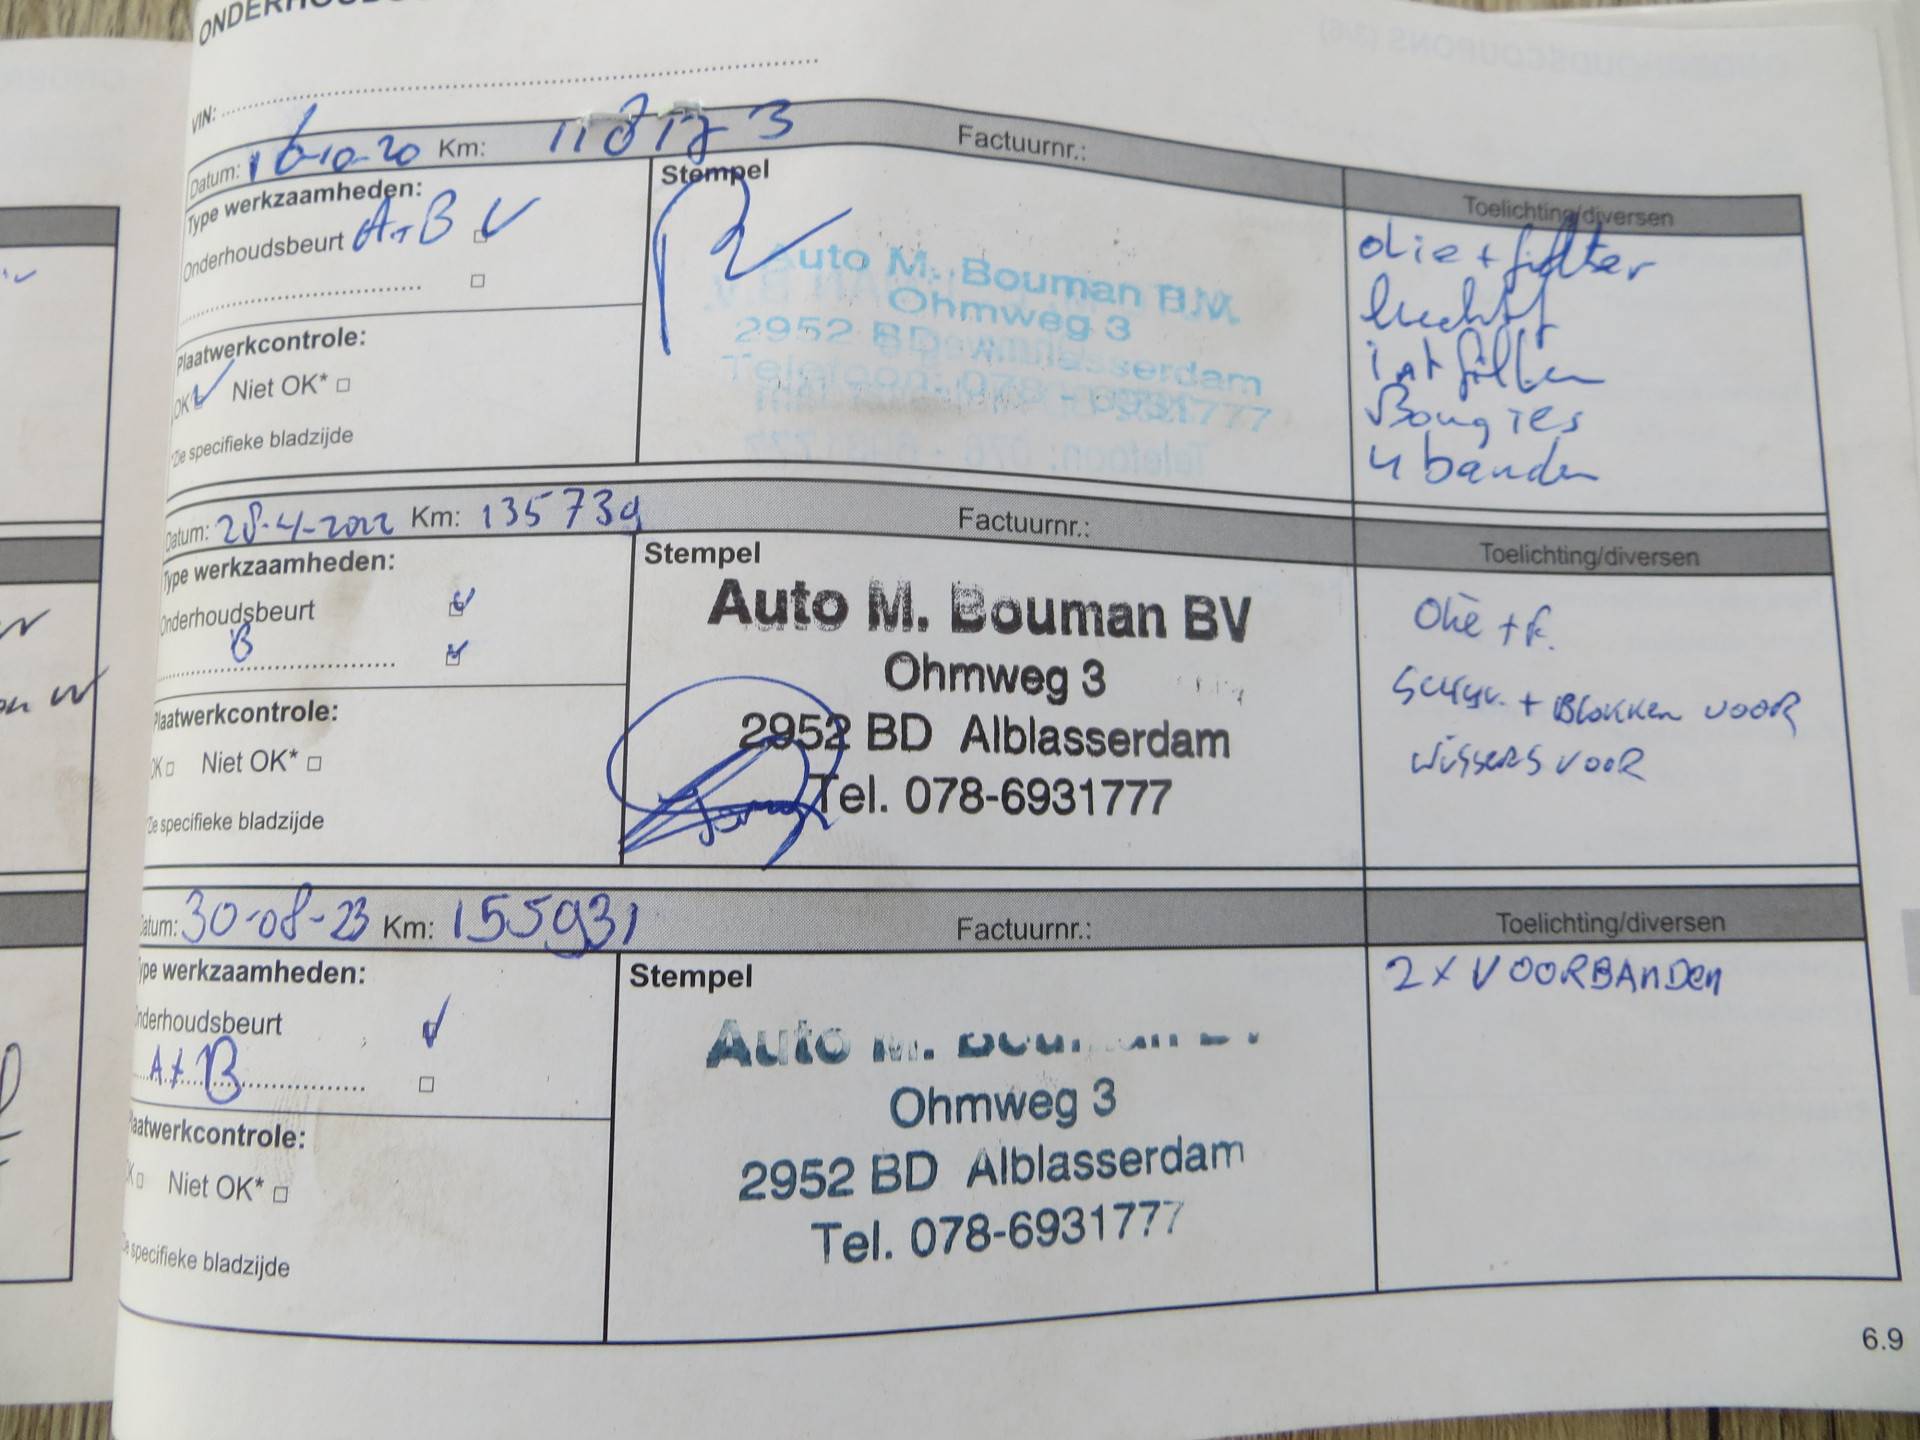 VIN:
Datum: 16-10-20 Km: 118173 Factuurnr.:
Toelichting/diversen
Type werkzaamheden:
Onderhoudsbeurt A+B
Stempel
Auto M. Bouman B.V.
Ohmweg 3
2952 BD Alblasserdam
Telefoon: 078 - 6931777
olie + filter
luchtf
int filter
Bougies
4 banden
Plaatwerkcontrole:
OK Niet OK*
*Zie specifieke bladzijde
Datum: 28-4-2022 Km: 135739 Factuurnr.:
Toelichting/diversen
Type werkzaamheden:
Onderhoudsbeurt
B
Stempel
Auto M. Bouman BV
Ohmweg 3
2952 BD Alblasserdam
Tel. 078-6931777
Olie + f.
Schijv. + Blokken voor
wissers voor
Plaatwerkcontrole:
OK Niet OK*
*Zie specifieke bladzijde
Datum: 30-08-23 Km: 155931 Factuurnr.:
Toelichting/diversen
Type werkzaamheden:
Onderhoudsbeurt
A+B
Stempel
Auto M. Bouman BV
Ohmweg 3
2952 BD Alblasserdam
Tel. 078-6931777
2x VOORBANDEN
Plaatwerkcontrole:
OK Niet OK*
*Zie specifieke bladzijde
6.9